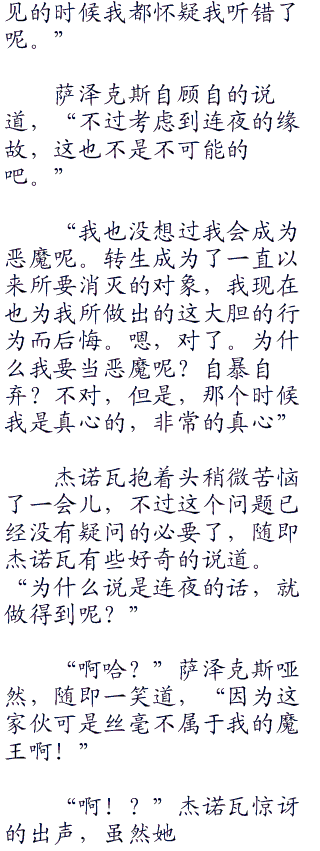 见的时候我都怀疑我听错了
呢。”
萨泽克斯自顾自的说
道，“不过考虑到连夜的缘
故，这也不是不可能的
吧。”
“我也没想过我会成为
恶魔呢。转生成为了一直以
来所要消灭的对象，我现在
也为我所做出的这大胆的行
为而后悔。嗯，对了。为什
么我要当恶魔呢？自暴自
弃？不对，但是，那个时候
我是真心的，非常的真心”
杰诺瓦抱着头稍微苦恼
了一会儿，不过这个问题已
经没有疑问的必要了，随即
杰诺瓦有些好奇的说道。
“为什么说是连夜的话，就
做得到呢？”
“啊哈？”萨泽克斯哑
然，随即一笑道，“因为这
家伙可是丝毫不属于我的魔
王啊！”
“啊！？”杰诺瓦惊讶
的出声，虽然她